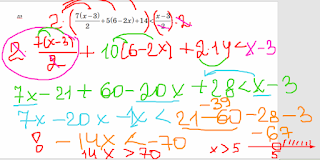 2(7(x-3)/2 + 5(6-2x) + 14 < (x-3)/2)·2
2·7(x-3)/2 + 10(6-2x) + 2·14 < x-3
7x-21 + 60-20x + 28 < x-3
-39
7x-20x-1x < 21-60-28-3
-67
-14x < -70
14x > 70
x>5
5